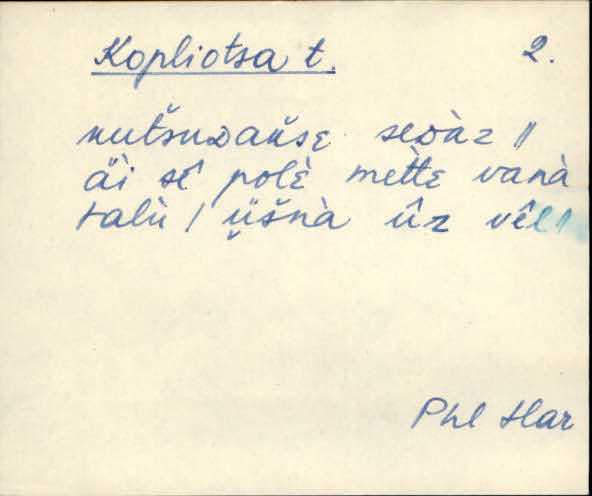 Kopliotsa t. 2.
nutšuᴅaṅsᴇ seᴅàz ||
äi sê polè mèttᴇ vanà
talù / ü̬šnà ûz vêl |
Phl Har